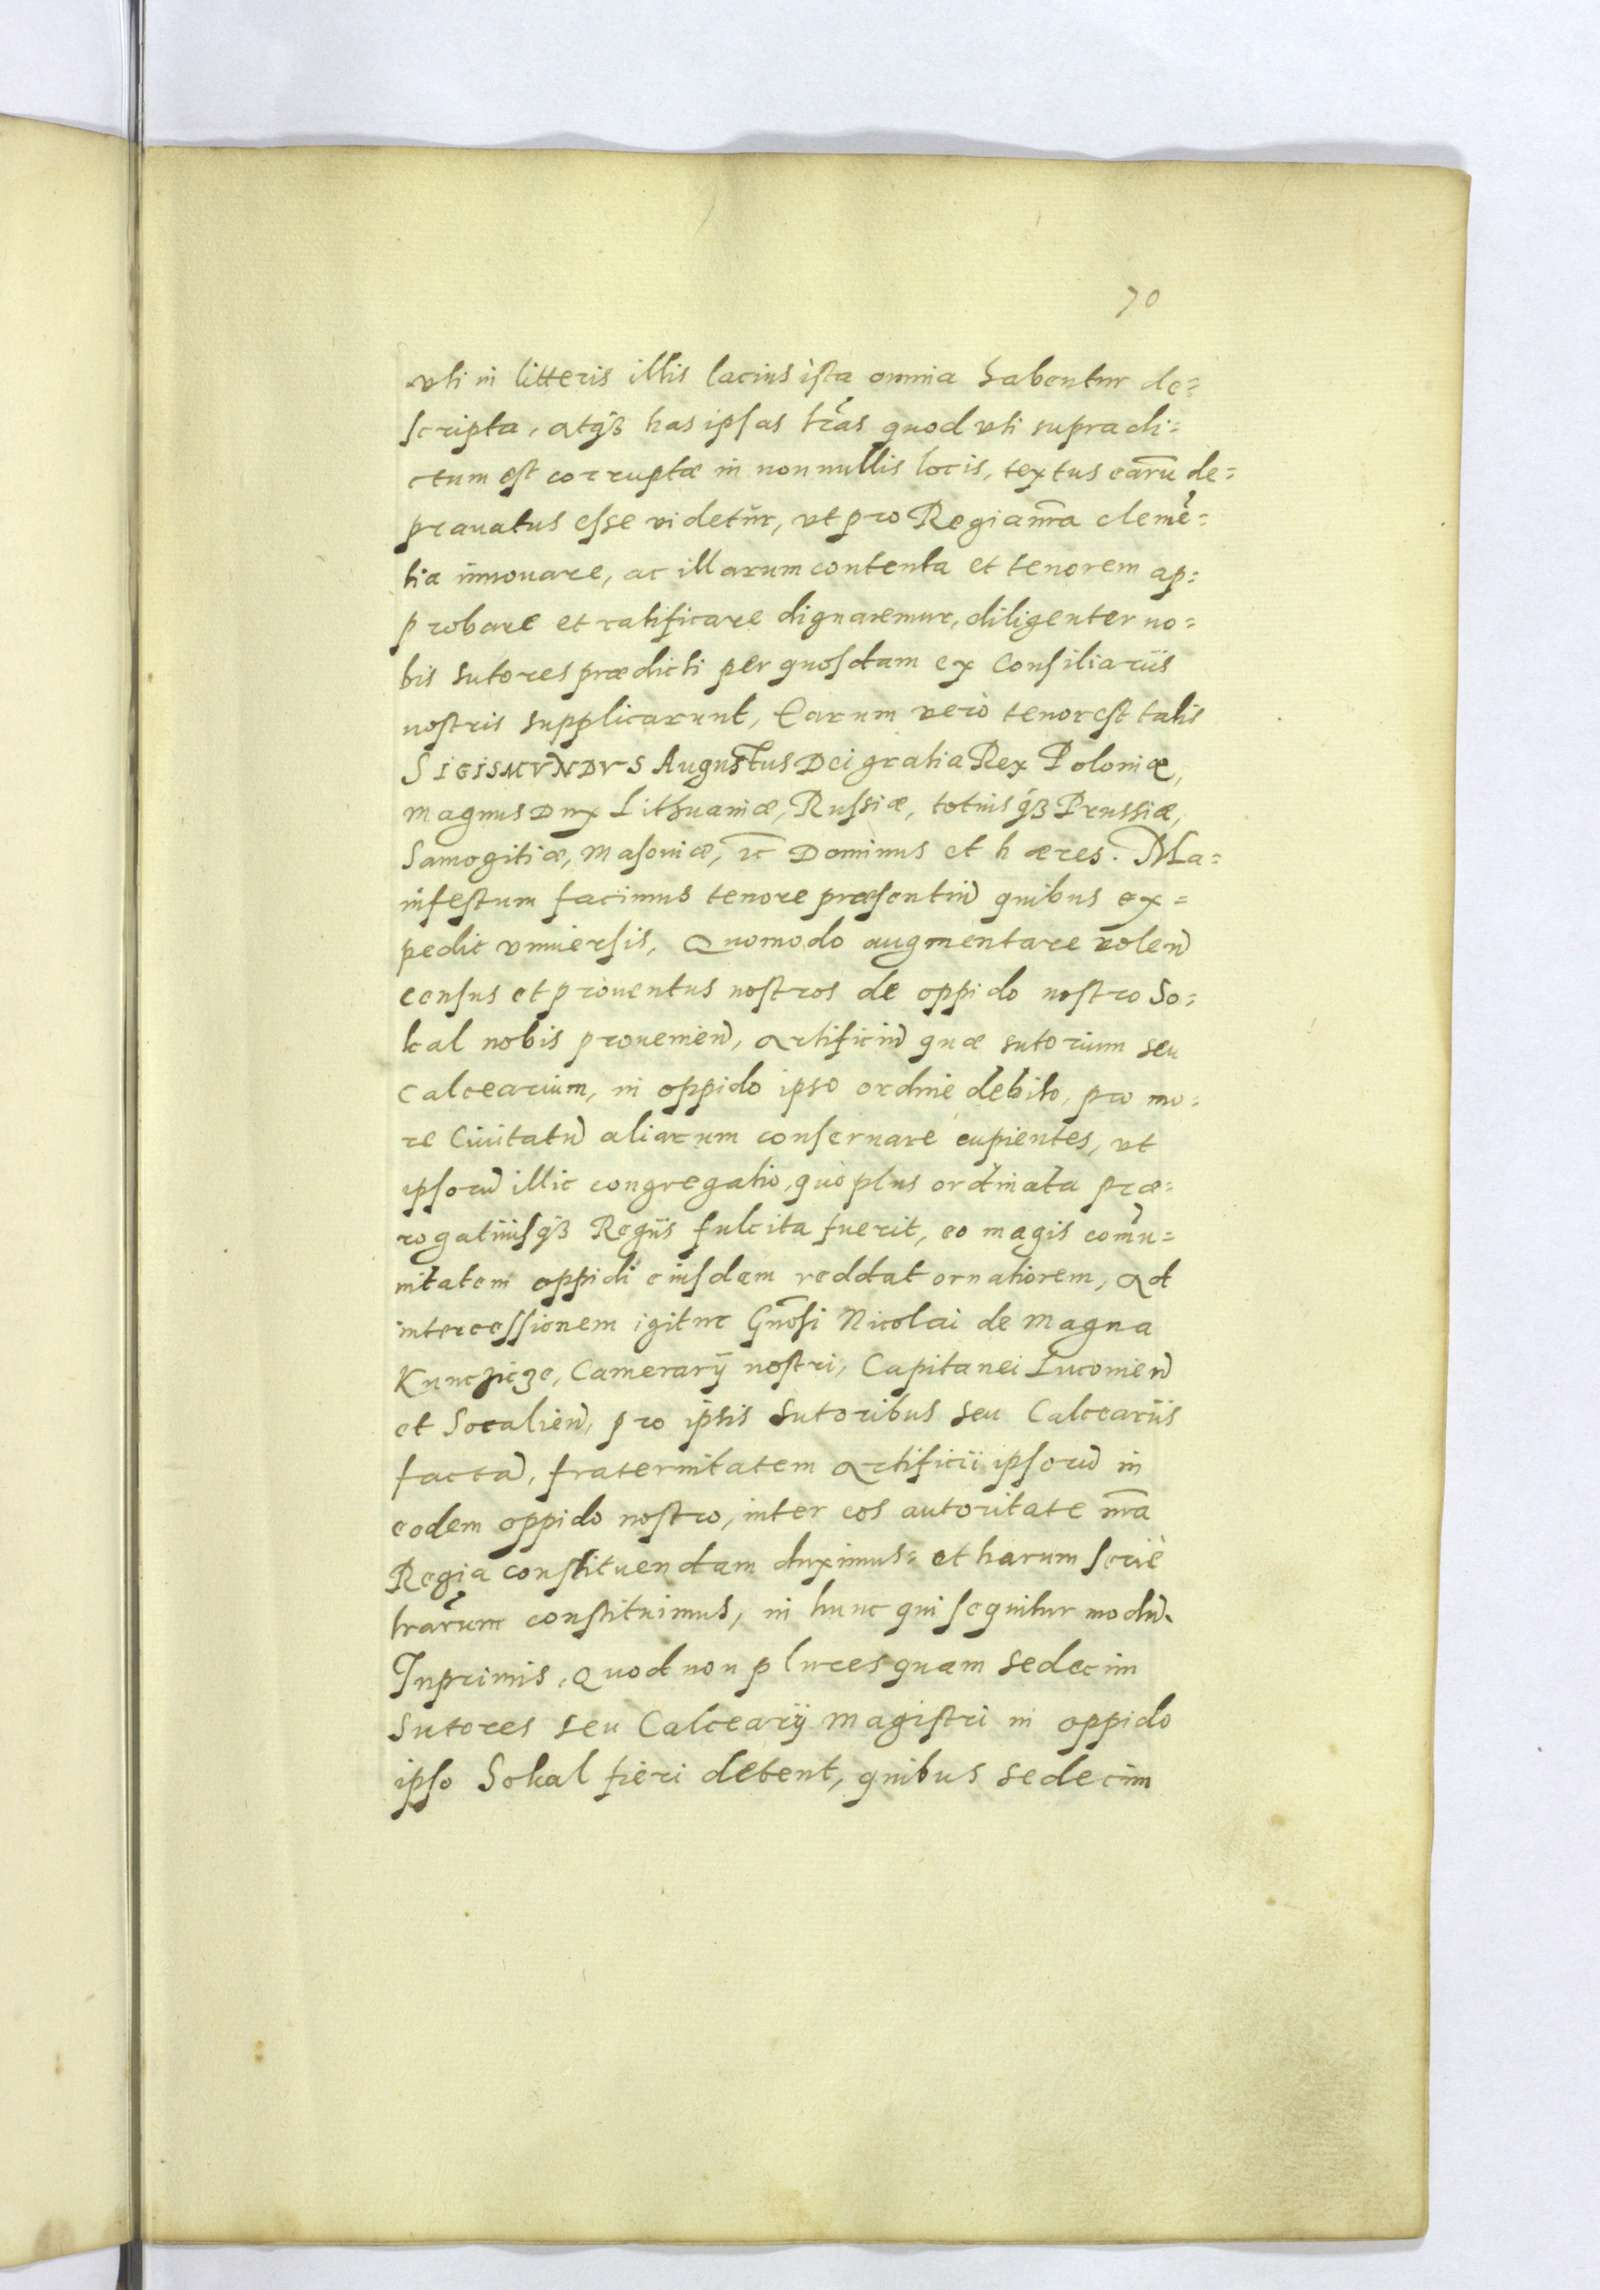 70
vti in litteris illis lacius ista omnia habentur de=
scripta, atqȝ has ipsas lr̃as quod vti supra di=
ctum est corruptæ in nonnullis locis, textus earũ de=
prauatus esse videtur, vt pro Regia nr̃a clemẽ=
tia innouare, ac illarum contenta et tenorem ap=
probare et ratificare dignaremur, diligenter no=
bis sutores prædicti per quosdam ex Consiliariis
nostris supplicarunt, Earum verò tenor est talis
SIGISMVNDVS Augustus Dei gratia Rex Poloniæ,
Magnus Dux Lithuaniæ, Russiæ, totiusqȝ Prussiæ,
Samogitiæ, Masouiæ, ꝛc Dominus et hæres. Ma=
nifestum facimus tenore præsentiũ quibus ex=
pedit vniuersis, Quomodo augmentare volen̄
census et prouentus nostros de oppido nostro So=
kal nobis prouenien̄, Artificiũ quæ sutorium seu
Calcearium, in oppido ipso ordine debito, pro mo=
re Ciuitatũ aliarum conseruare cupientes, vt
ipsorũ illic congregatio, quò plus ordinata præ=
rogatiuisqȝ Regiis fulcita fuerit, eo magis com̃u=
nitatem oppidi eiusdem reddat ornatiorem, Ad
intercessionem igitur Gn̄osi Nicolai de Magna
Kunczicze, Camerarÿ nostri, Capitanei Lucorien̄
et Socalien̄, pro ipsis Sutoribus seu Calceariis
factã, fraternitatem Artificii ipsorũ in
eodem oppido nostro, inter eos autoritate nr̃a
Regia constituendam duximus= et harum seriè
lr̃arum constituimus, in hunc qui sequitur modũ.
Inprimis, Quod non plures quam sedecim
Sutores seu Calcearÿ magistri in oppido
ipso Sokal fieri debent, quibus sedecim